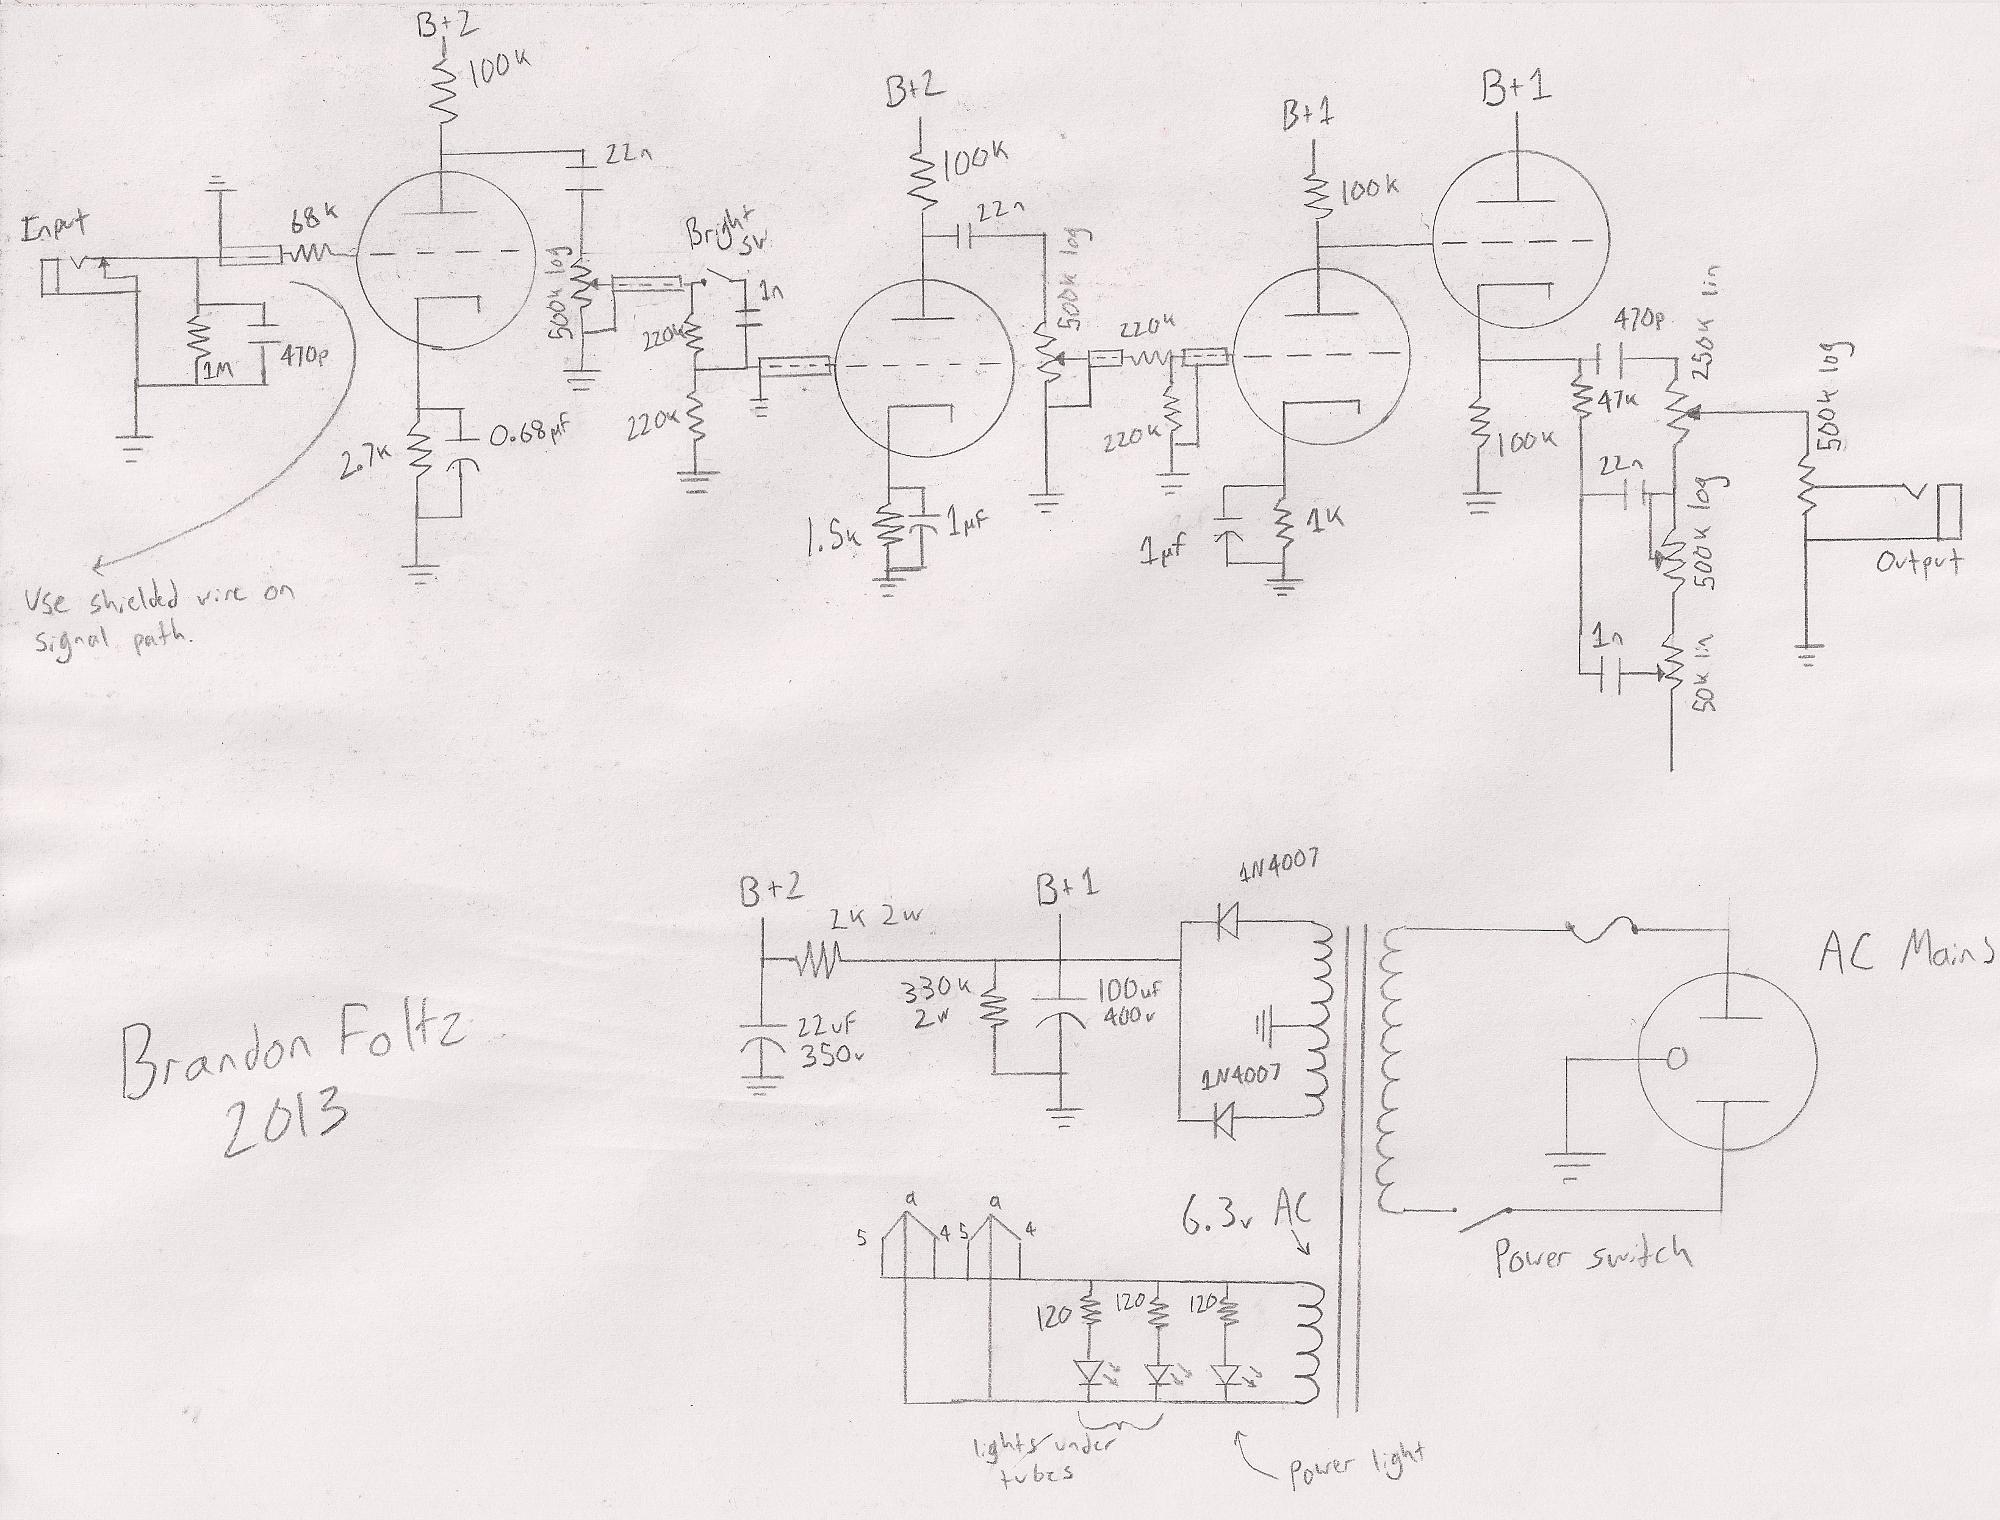 B+2
100k
22n
Input
68k
1M
470p
500k log
Bright
SW
1n
220k
220k
2.7k
0.68µF
Use shielded wire on
signal path.
B+2
100k
22n
500k log
1.5k
1µF
220k
220k
B+1
100k
1µF
1k
B+1
100k
470p
250k lin
47k
22n
500k log
1n
50k lin
500k log
Output
B+2
2k 2w
B+1
330k
2w
100uf
400v
22uF
350v
1N4007
1N4007
AC Mains
Brandon Foltz
2013
6.3v AC
Power switch
5
9
4
5
9
4
120
120
120
lights under
tubes
Power light